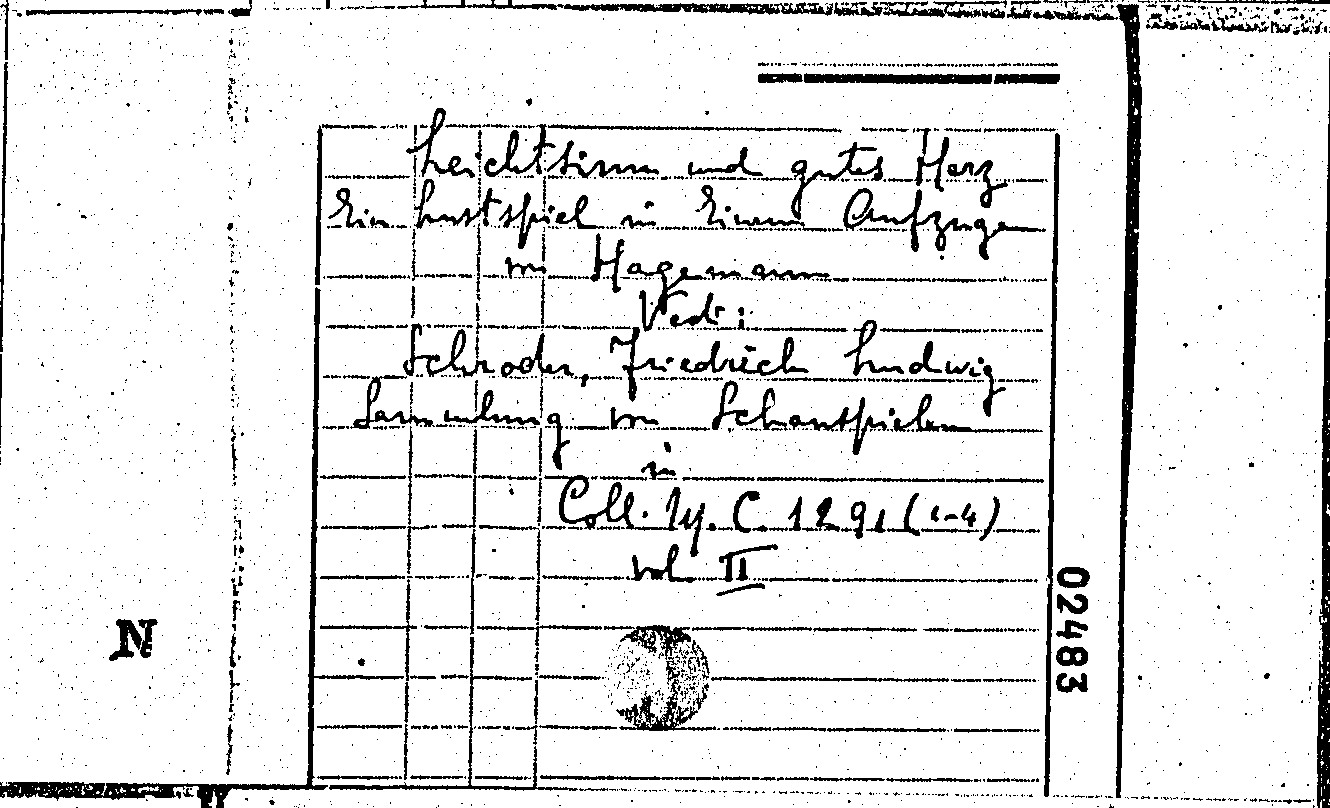 Leichtsinn und gutes Herz
Ein Lustspiel in Einem Aufzuge
von Hagemann
Vedi:
Schroder, Friedrich Ludwig
Sammlung von Schauspielen
in
Coll. It. C. 1291 (1-4)
vol. II
02483
N